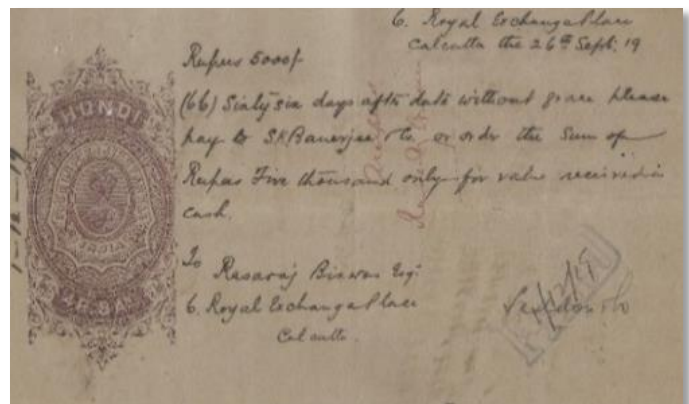 6. Royal Exchange Place
Calcutta the 26th Sept. 19
Rupees 5000/-
(66) Sixty six days after date without grace please
pay to S.K. Banerjee & Co. or order the Sum of
Rupees Five thousand only for value received in
cash.
To
Rasaraj Biswas Esq.
6. Royal Exchange Place
Calcutta.
HUNDI
INDIA